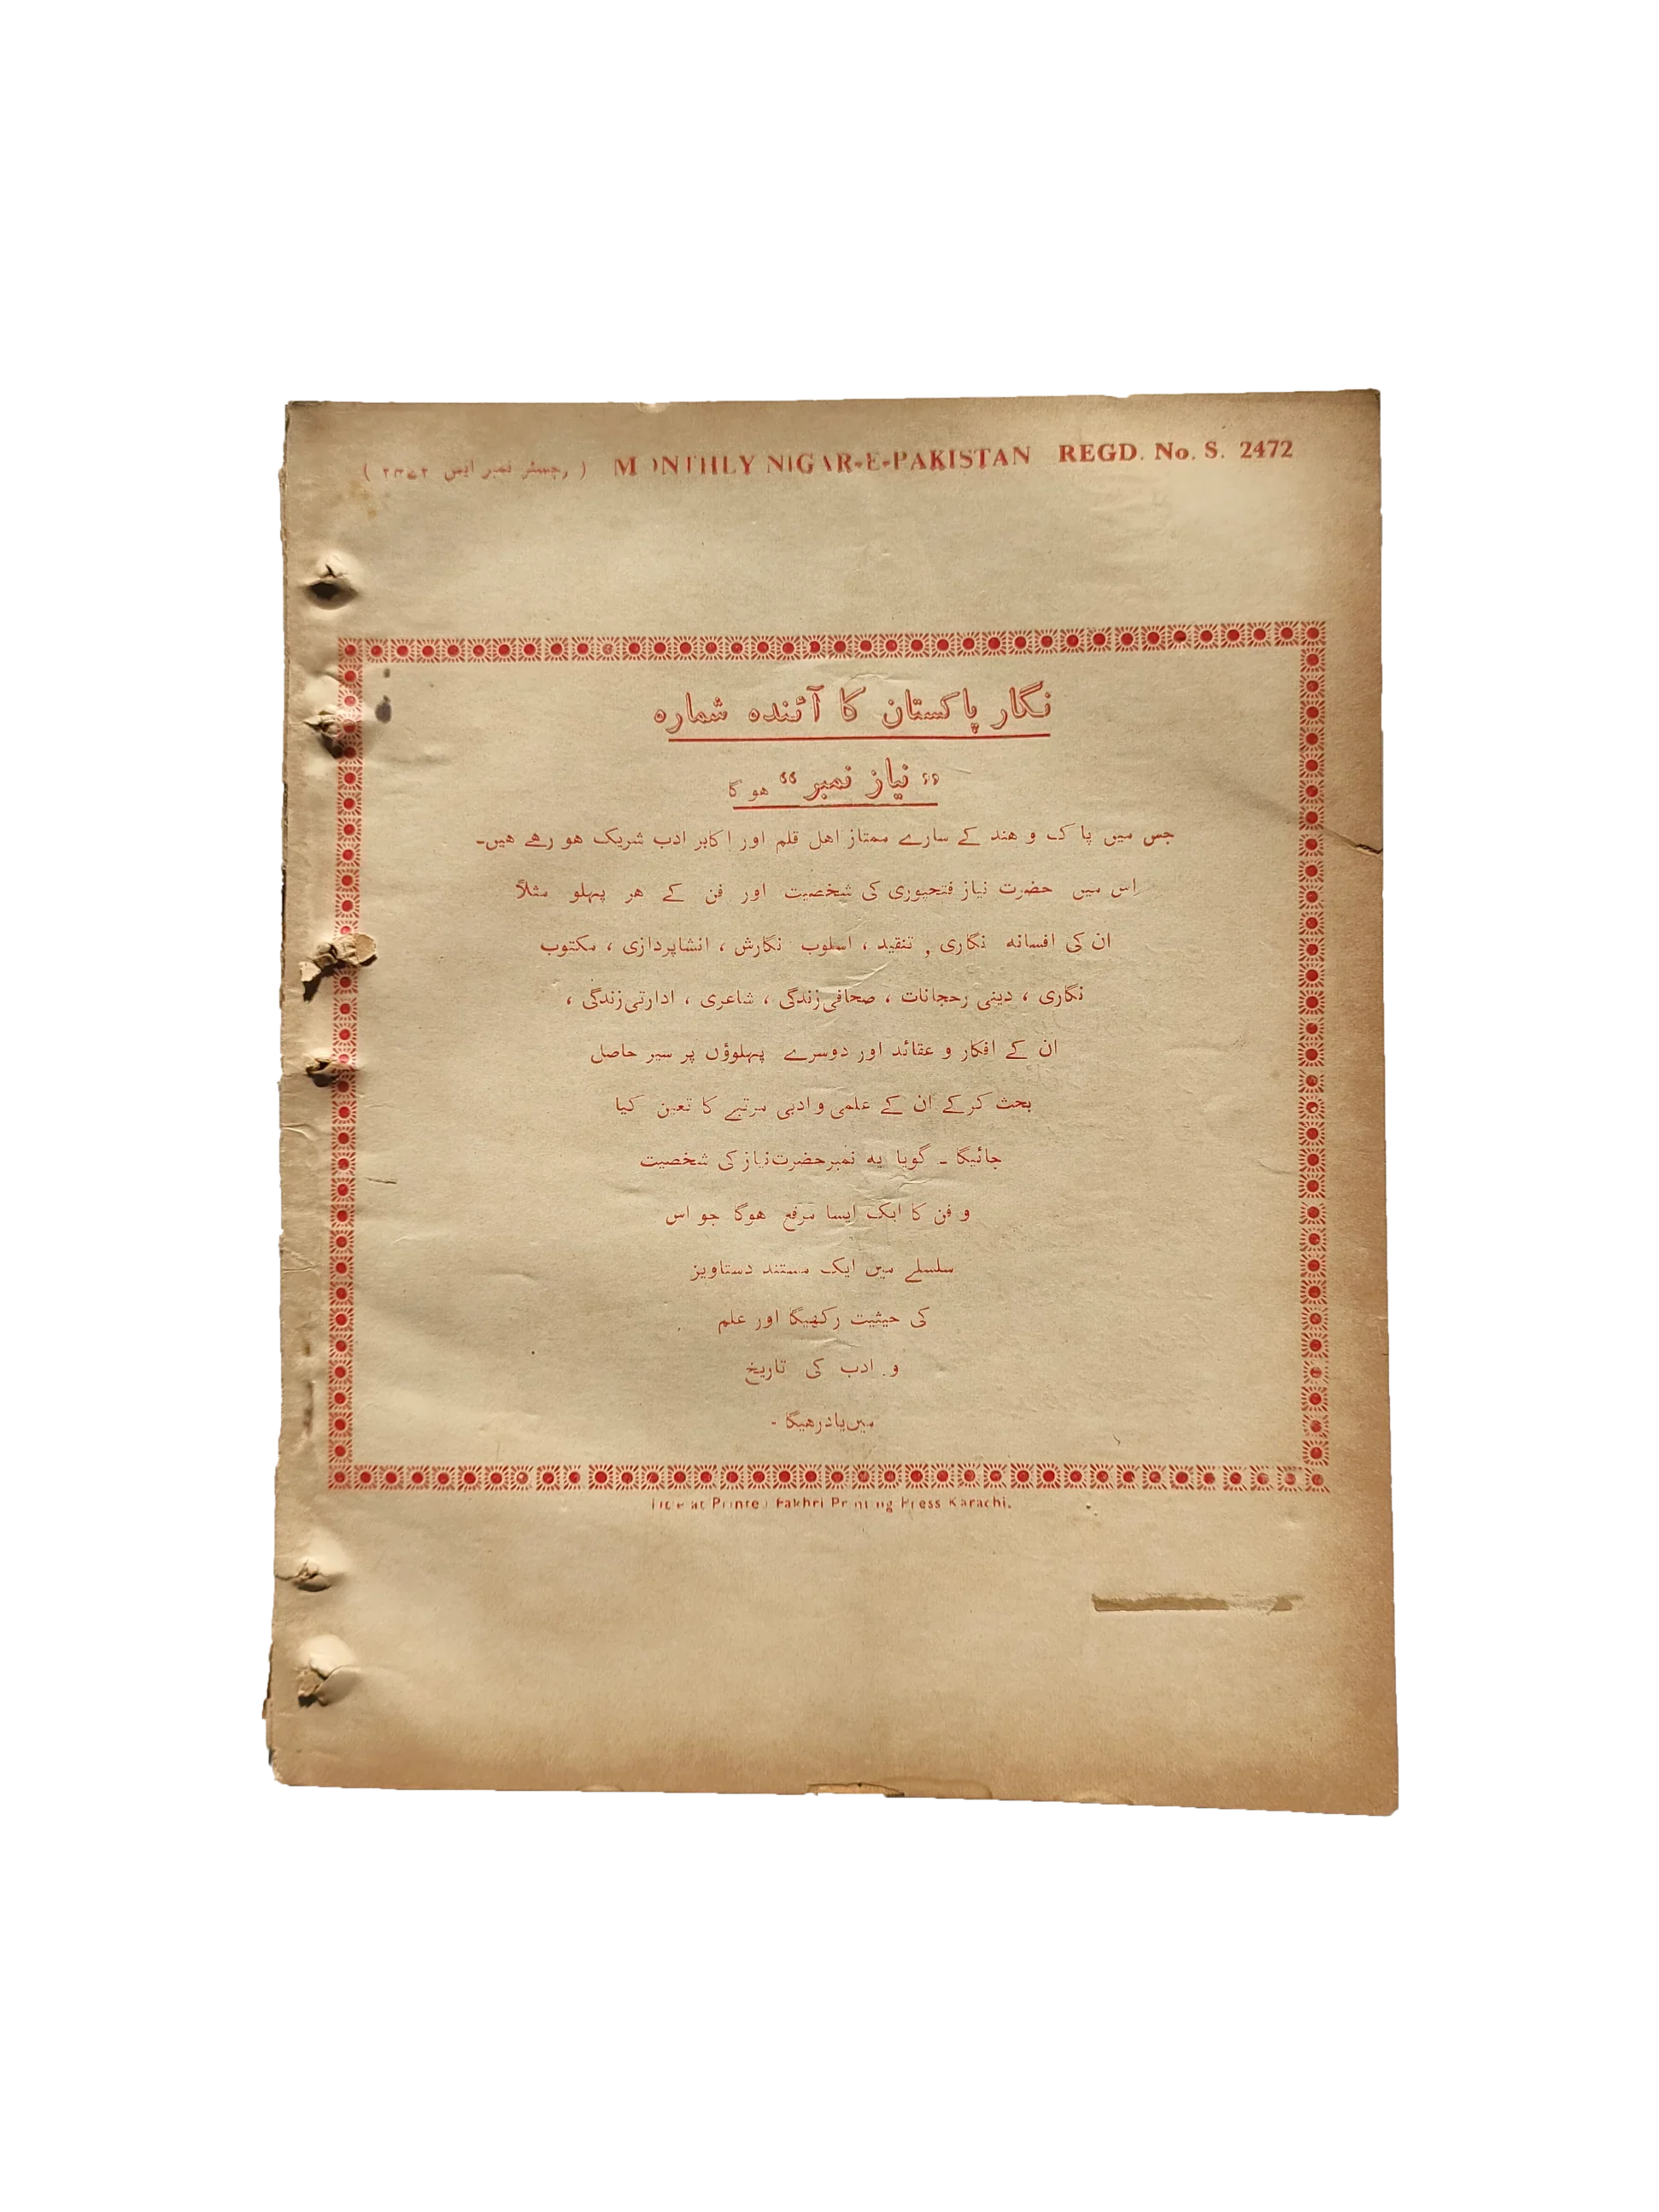 MONTHLY NIGAR-E-PAKISTAN REGD. No. S. 2472 ( رجسٹر نمبر ایس ۲۴۷۲ )
نگار پاکستان کا آئندہ شمارہ
” نیاز نمبر “ ھوگا
جس میں پاک و ھند کے سارے ممتاز اھل قلم اور اکابر ادب شریک ھو رھے ھیں۔
اس میں حضرت نیاز فتحپوری کی شخصیت اور فن کے ھر پہلو مثلاً
ان کی افسانہ نگاری , تنقید ، اسلوب نگارش ، انشاپردازی ، مکتوب
نگاری ، دینی رحجانات ، صحافی زندگی ، شاعری ، ادارتی زندگی ،
ان کے افکار و عقائد اور دوسرے پہلوؤں پر سیر حاصل
بحث کرکے ان کے علمی و ادبی مرتبے کا تعین کیا
جائیگا ۔ گویا یہ نمبر حضرت نیاز کی شخصیت
و فن کا ایک ایسا مرقع ھوگا جو اس
سلسلے میں ایک مستند دستاویز
کی حیثیت رکھیگا اور علم
و ادب کی تاریخ
میں یاد رھیگا ۔
at Printed Fakhri Printing Press Karachi.